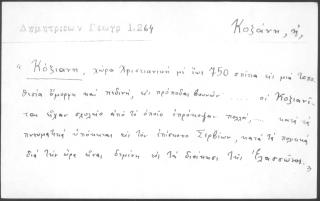 Δημητριεων Γεωγρ 1.264
Κοζάνη, ἡ,
« Κόζιανη, χώρα Χριστιανικὴ μὲ ἕως 750 σπίτια εἰς μιὰ τοπο
θεσία ὄμορφη καὶ πεδινή, ὡς πρόποδας βουνῶν .... οἱ Κοζιανι-
ται εἶχαν σχολεῖο ἀπὸ τὸ ὁποῖο ἐπρόκοψαν πολλοί, .. κατὰ τὰ
πνευματικὰ ὑπόκειται εἰς τὸν ἐπίσκοπο Σερβίων, κατὰ τὰ πολιτικὰ
διὰ τὴν ὥρα εἶναι δεμένη εἰς τὰ διοίκησι τῆς Ἐλασσῶνος. »